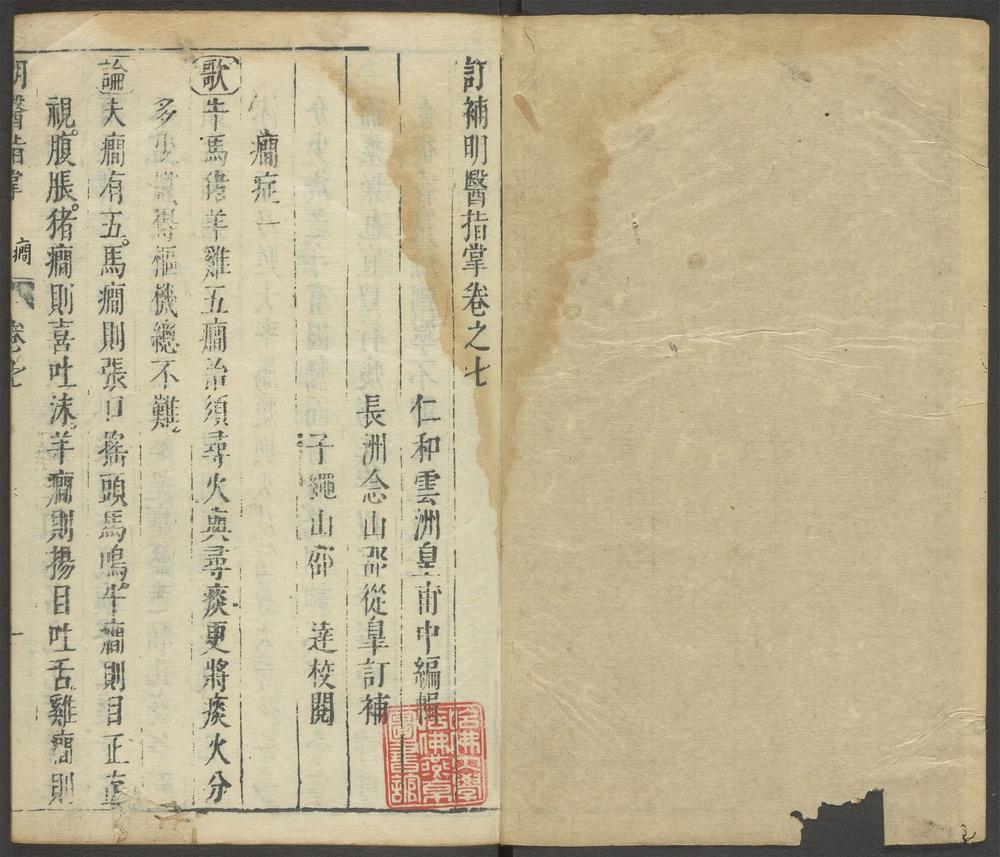 訂補明醫指掌卷之七
仁和雲洲皇甫中編輯
長洲念山邵從皐訂補
子繩山邵達校閱
癇症一
歌牛馬猪羊雞五癇治須尋火與尋痰更將痰火分
多少樞機總不難
論夫癇有五馬癇則張口搖頭馬鳴牛癇則目正直
視腹脹猪癇則喜吐沫羊癇則揚目吐舌雞癇則
明醫指掌 癇 卷七 一
哈佛大學哈佛燕京圖書館